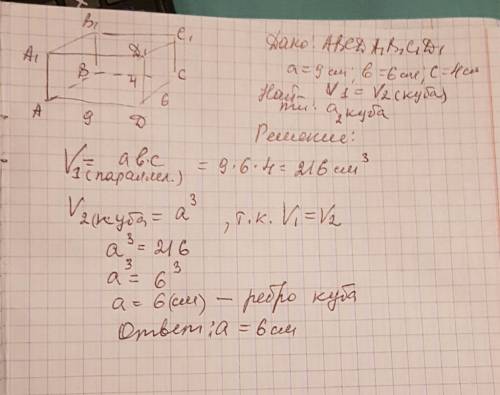 B₁
C₁
A₁
D₁
B
4
C
A
6
9
D
Дано: ABCD A₁B₁C₁D₁
a = 9 см; b = 6 см; c = 4 см
Най-
ти:
V₁ = V₂ (куба)
a куба
2
Решение:
V₁ = a b · c = 9 · 6 · 4 = 216 см³
(параллел.)
V₂ (куба) = a³, т.к. V₁ = V₂
a³ = 216
a³ = 6³
a = 6 (см) — ребро куба
Ответ: a = 6 см